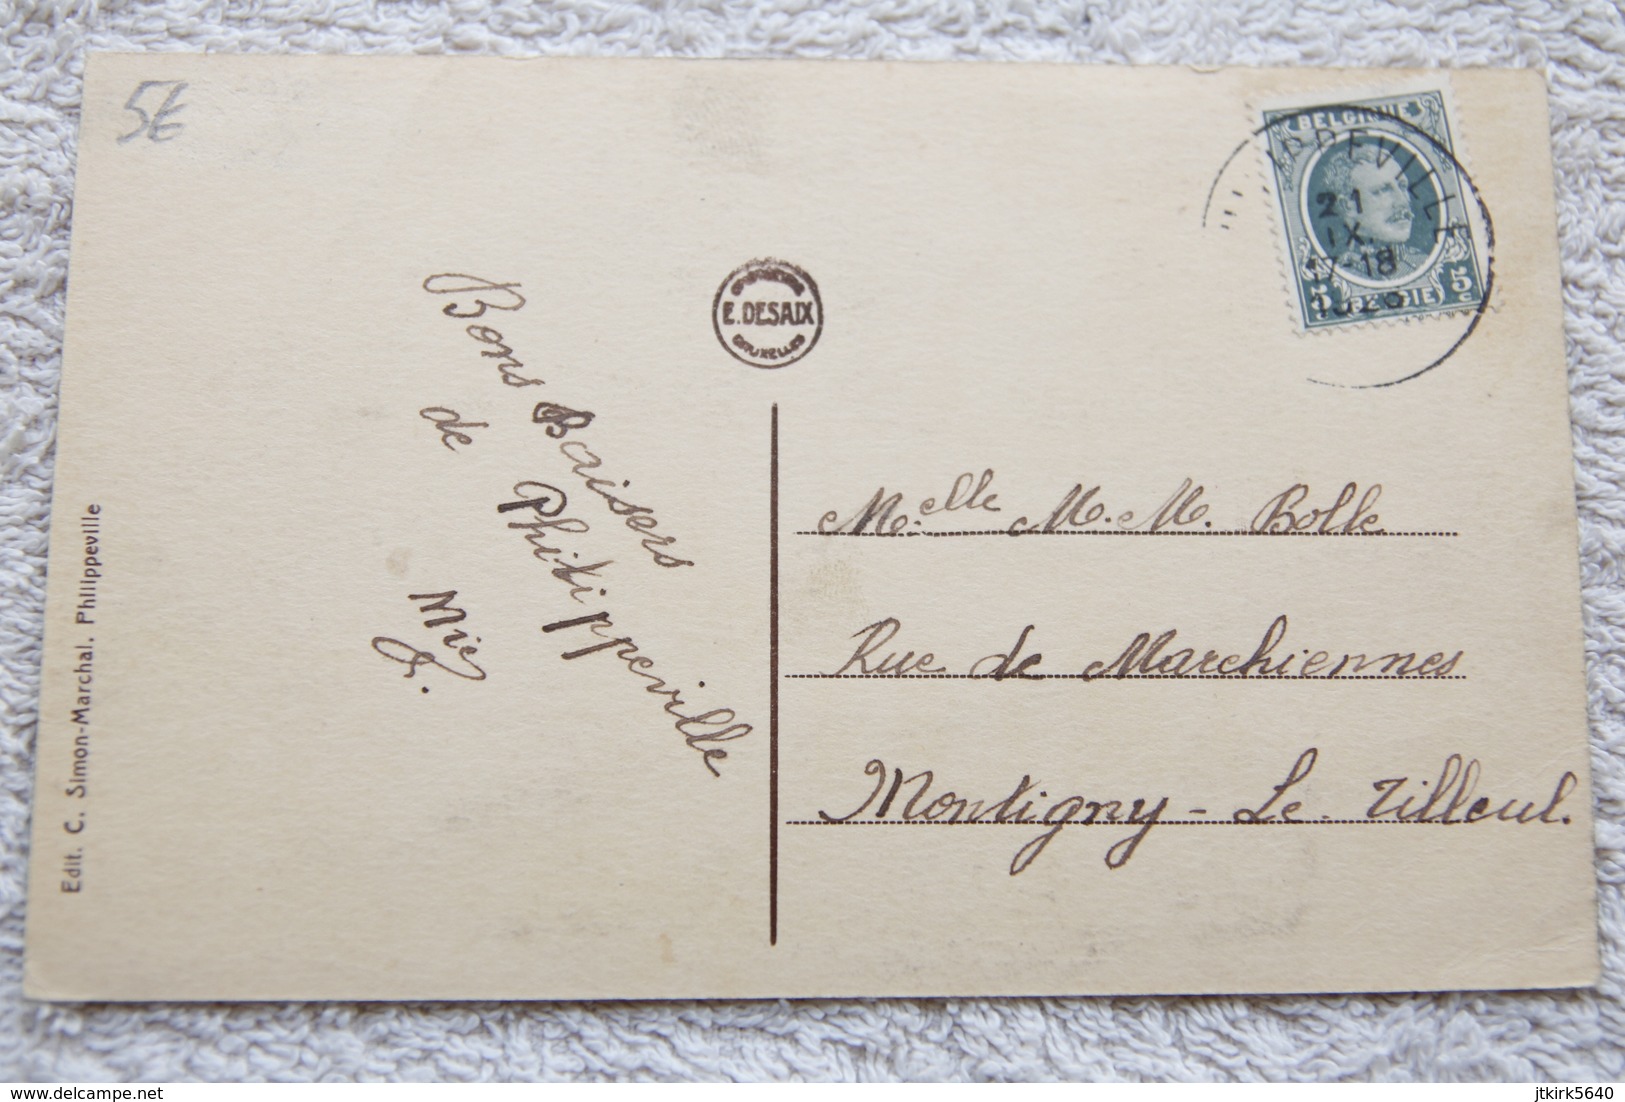 5€
BELGIQUE
21
IX.
17-18
5c
E. DESAIX
BRUXELLES
Bons Baisers
de Philippeville
M.elle M. M. Bolle
Rue de Marchiennes
Montigny - Le - Tilleul.
Edit. C. Simon-Marchal. Philippeville
www.delcampe.net
jtkirk5640